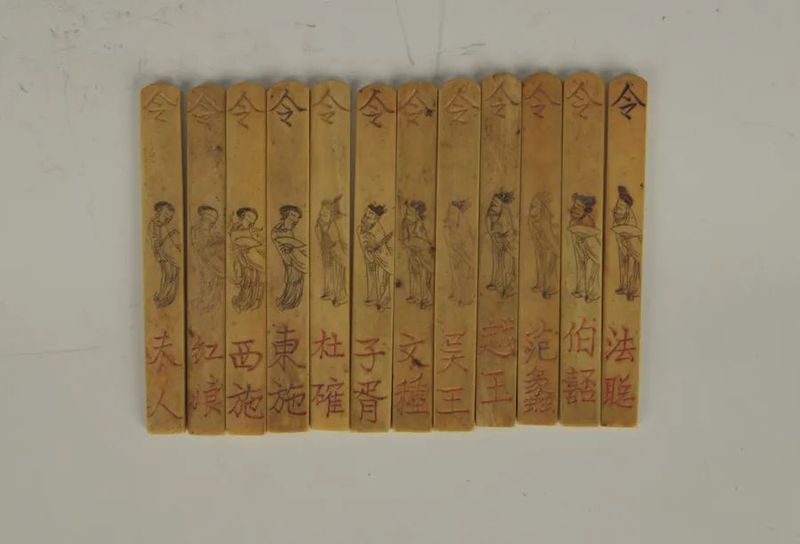 令 夫人
令 紅娘
令 西施
令 東施
令 杜確
令 子胥
令 文種
令 吴王
令 越王
令 范蠡
令 伯
令 法聪